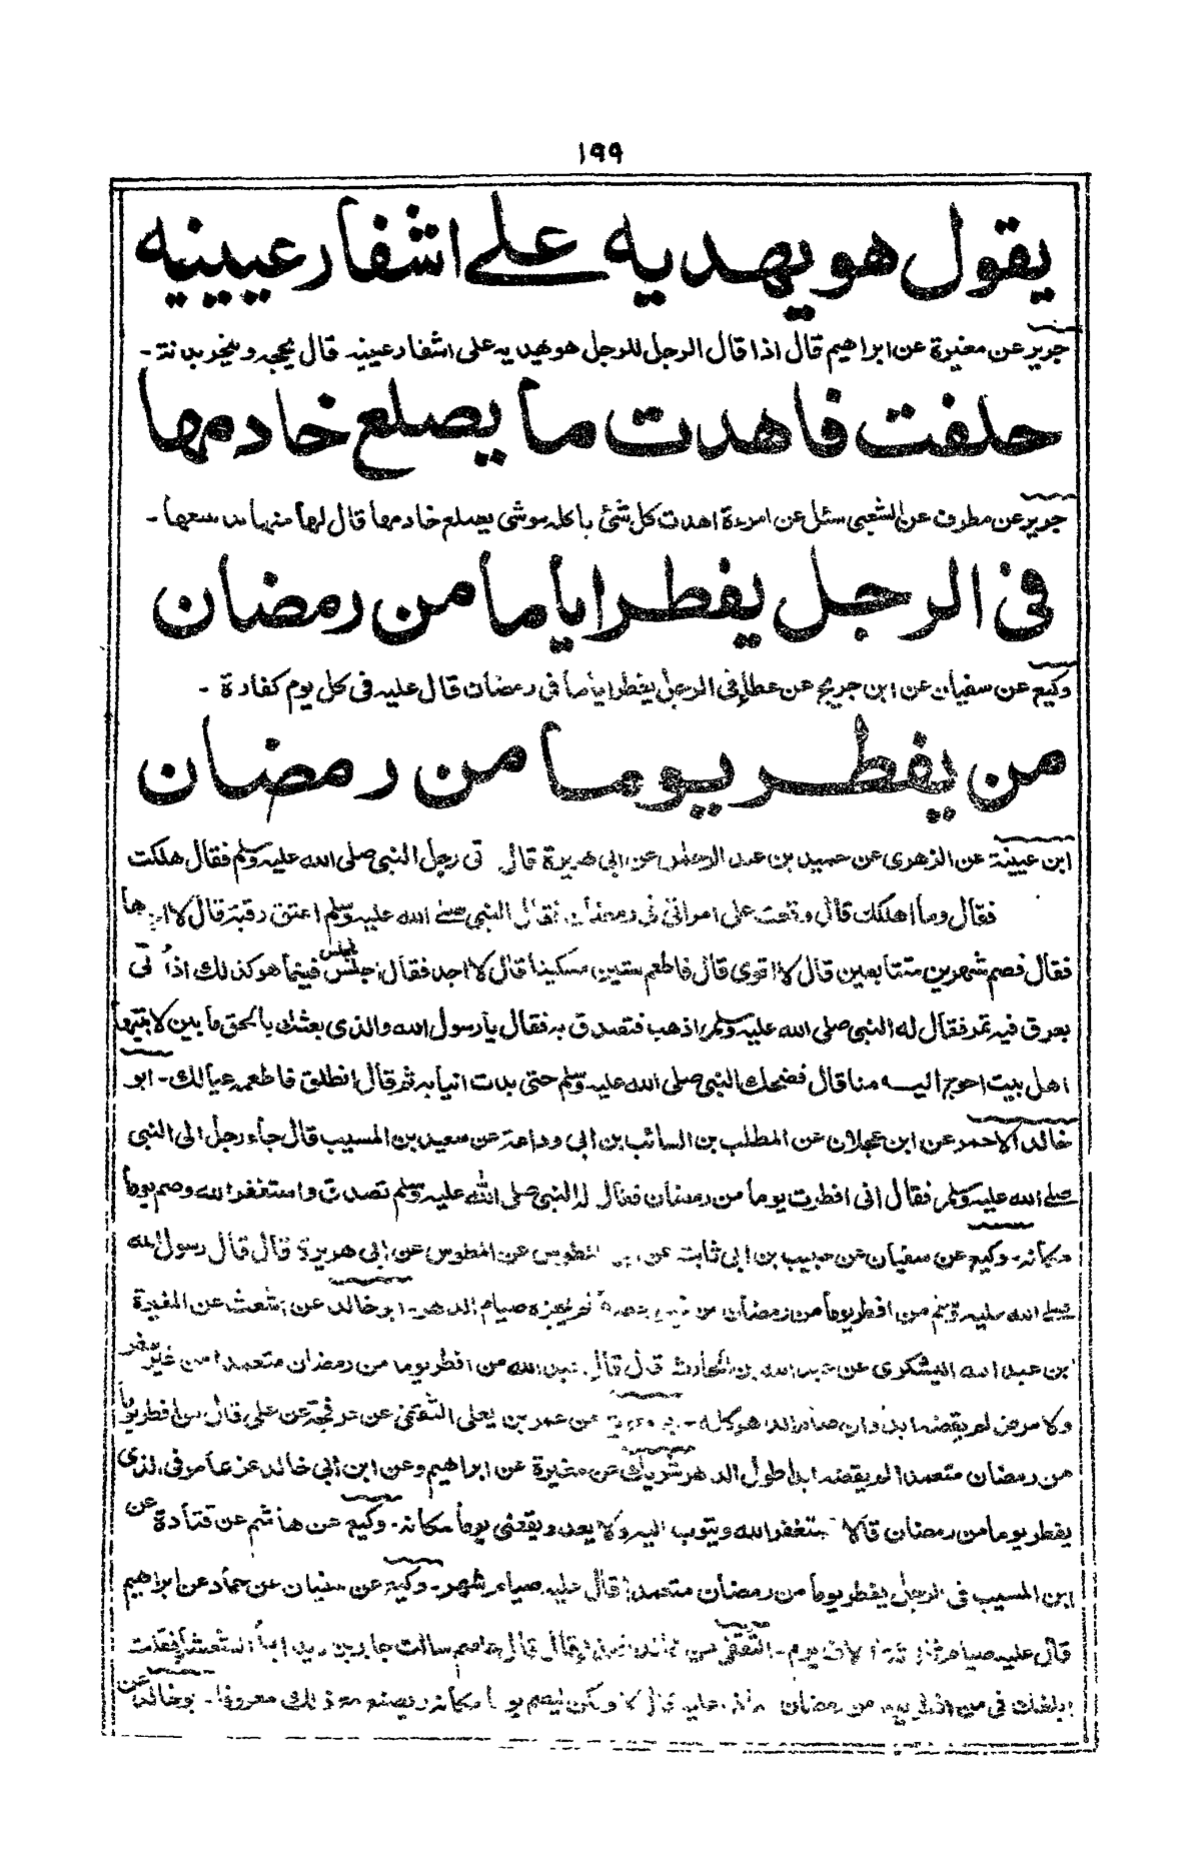 ١٩٩
يقول هو يهديه على اشفار عيينيه
جرير عن مغيرة عن ابراهيم قال اذا قال الرجل للرجل هو يهديه على اشفار عينيه قال يحجه وينحر بدنة -
حلفت فاهدت ما يصلع خادمها
جرير عن مطرف عن الشعبى سئل عن امرءة اهدت كل شئ باكله بوشى يصلع خادمها قال لها
فى الرجل يفطر اياما من رمضان
وكيع عن سفيان عن ابن جريج عن عطاء فى الرجل يفطر اياما فى رمضان قال عليه فى كل يوم كفارة -
من يفطر يوما من رمضان
ابن عيينة عن الزهرى عن حميد بن عبد الرحمن عن ابى هريرة قال تى رجل النبى صلى الله عليه وسلم فقال هلكت
فقال وما اهلكك قال وقعت على امراتى فى رمضان فقال النبى صلى الله عليه وسلم اعتق رقبة قال لا
فقال فصم شهرين متتابعين قال لا اقوى قال فاطعم ستين مسكينا قال لا اجد فقال اجلس فجلس فبينما هو كذلك اذا تى
بعرق فيه تمر فقال له النبى صلى الله عليه وسلم اذهب فتصدق به فقال يا رسول الله والذى بعثك بالحق ما بين لابتيها
اهل بيت احوج اليه منا قال فضحك النبى صلى الله عليه وسلم حتى بدت انيابه ثم قال انطلق فاطعمه عيالك - ابو
خالد الاحمر عن ابن عجلان عن المطلب بن السائب بن ابى وداعة عن سعيد بن المسيب قال جاء رجل الى النبى
صلى الله عليه وسلم فقال انى افطرت يوما من رمضان فقال له النبى صلى الله عليه وسلم تصدق واستغفر الله وصم يوما
مكانه - وكيع عن سفيان عن حبيب بن ابى ثابت عن المطوس عن المطوس عن ابى هريرة قال قال رسول الله
صلى الله عليه وسلم من افطر يوما من رمضان من غير رخصة لم يجزه صيام الدهر - ابو خالد عن اشعث عن المغيرة
بن عبد الله اليشكرى عن عبد الله بن الحارث قال قال عبد الله من افطر يوما من رمضان متعمدا من غير سفر
ولا مرض لم يقضه ابدا وان صام الدهر كله - عن عمر بن يعلى الثقفى عن عرفجة عن على قال من افطر يوما
من رمضان متعمدا لم يقضه ابدا طول الدهر شريك عن مغيرة عن ابراهيم وعن ابن ابى خالد عن عامر فى الذى
يفطر يوما من رمضان قالا يستغفر الله ويتوب اليه ولا يعد ويقضى يوما مكانه - وكيع عن هاشم عن قتادة عن
ابن المسيب فى الرجل يفطر يوما من رمضان متعمدا قال عليه صيام شهر - وكيع عن سفيان عن حماد عن ابراهيم
قال عليه صيام ثلاثة الاف يوم - الثقفى قال قال عاصم سالت جابر بن زيد ابا الشعثاء فقلت
ابلغك فى من افطر يوما من رمضان عليه قال لا ولكن ليصم يوما مكانه ويصنع مع ذلك معروفا - بو خالد عن